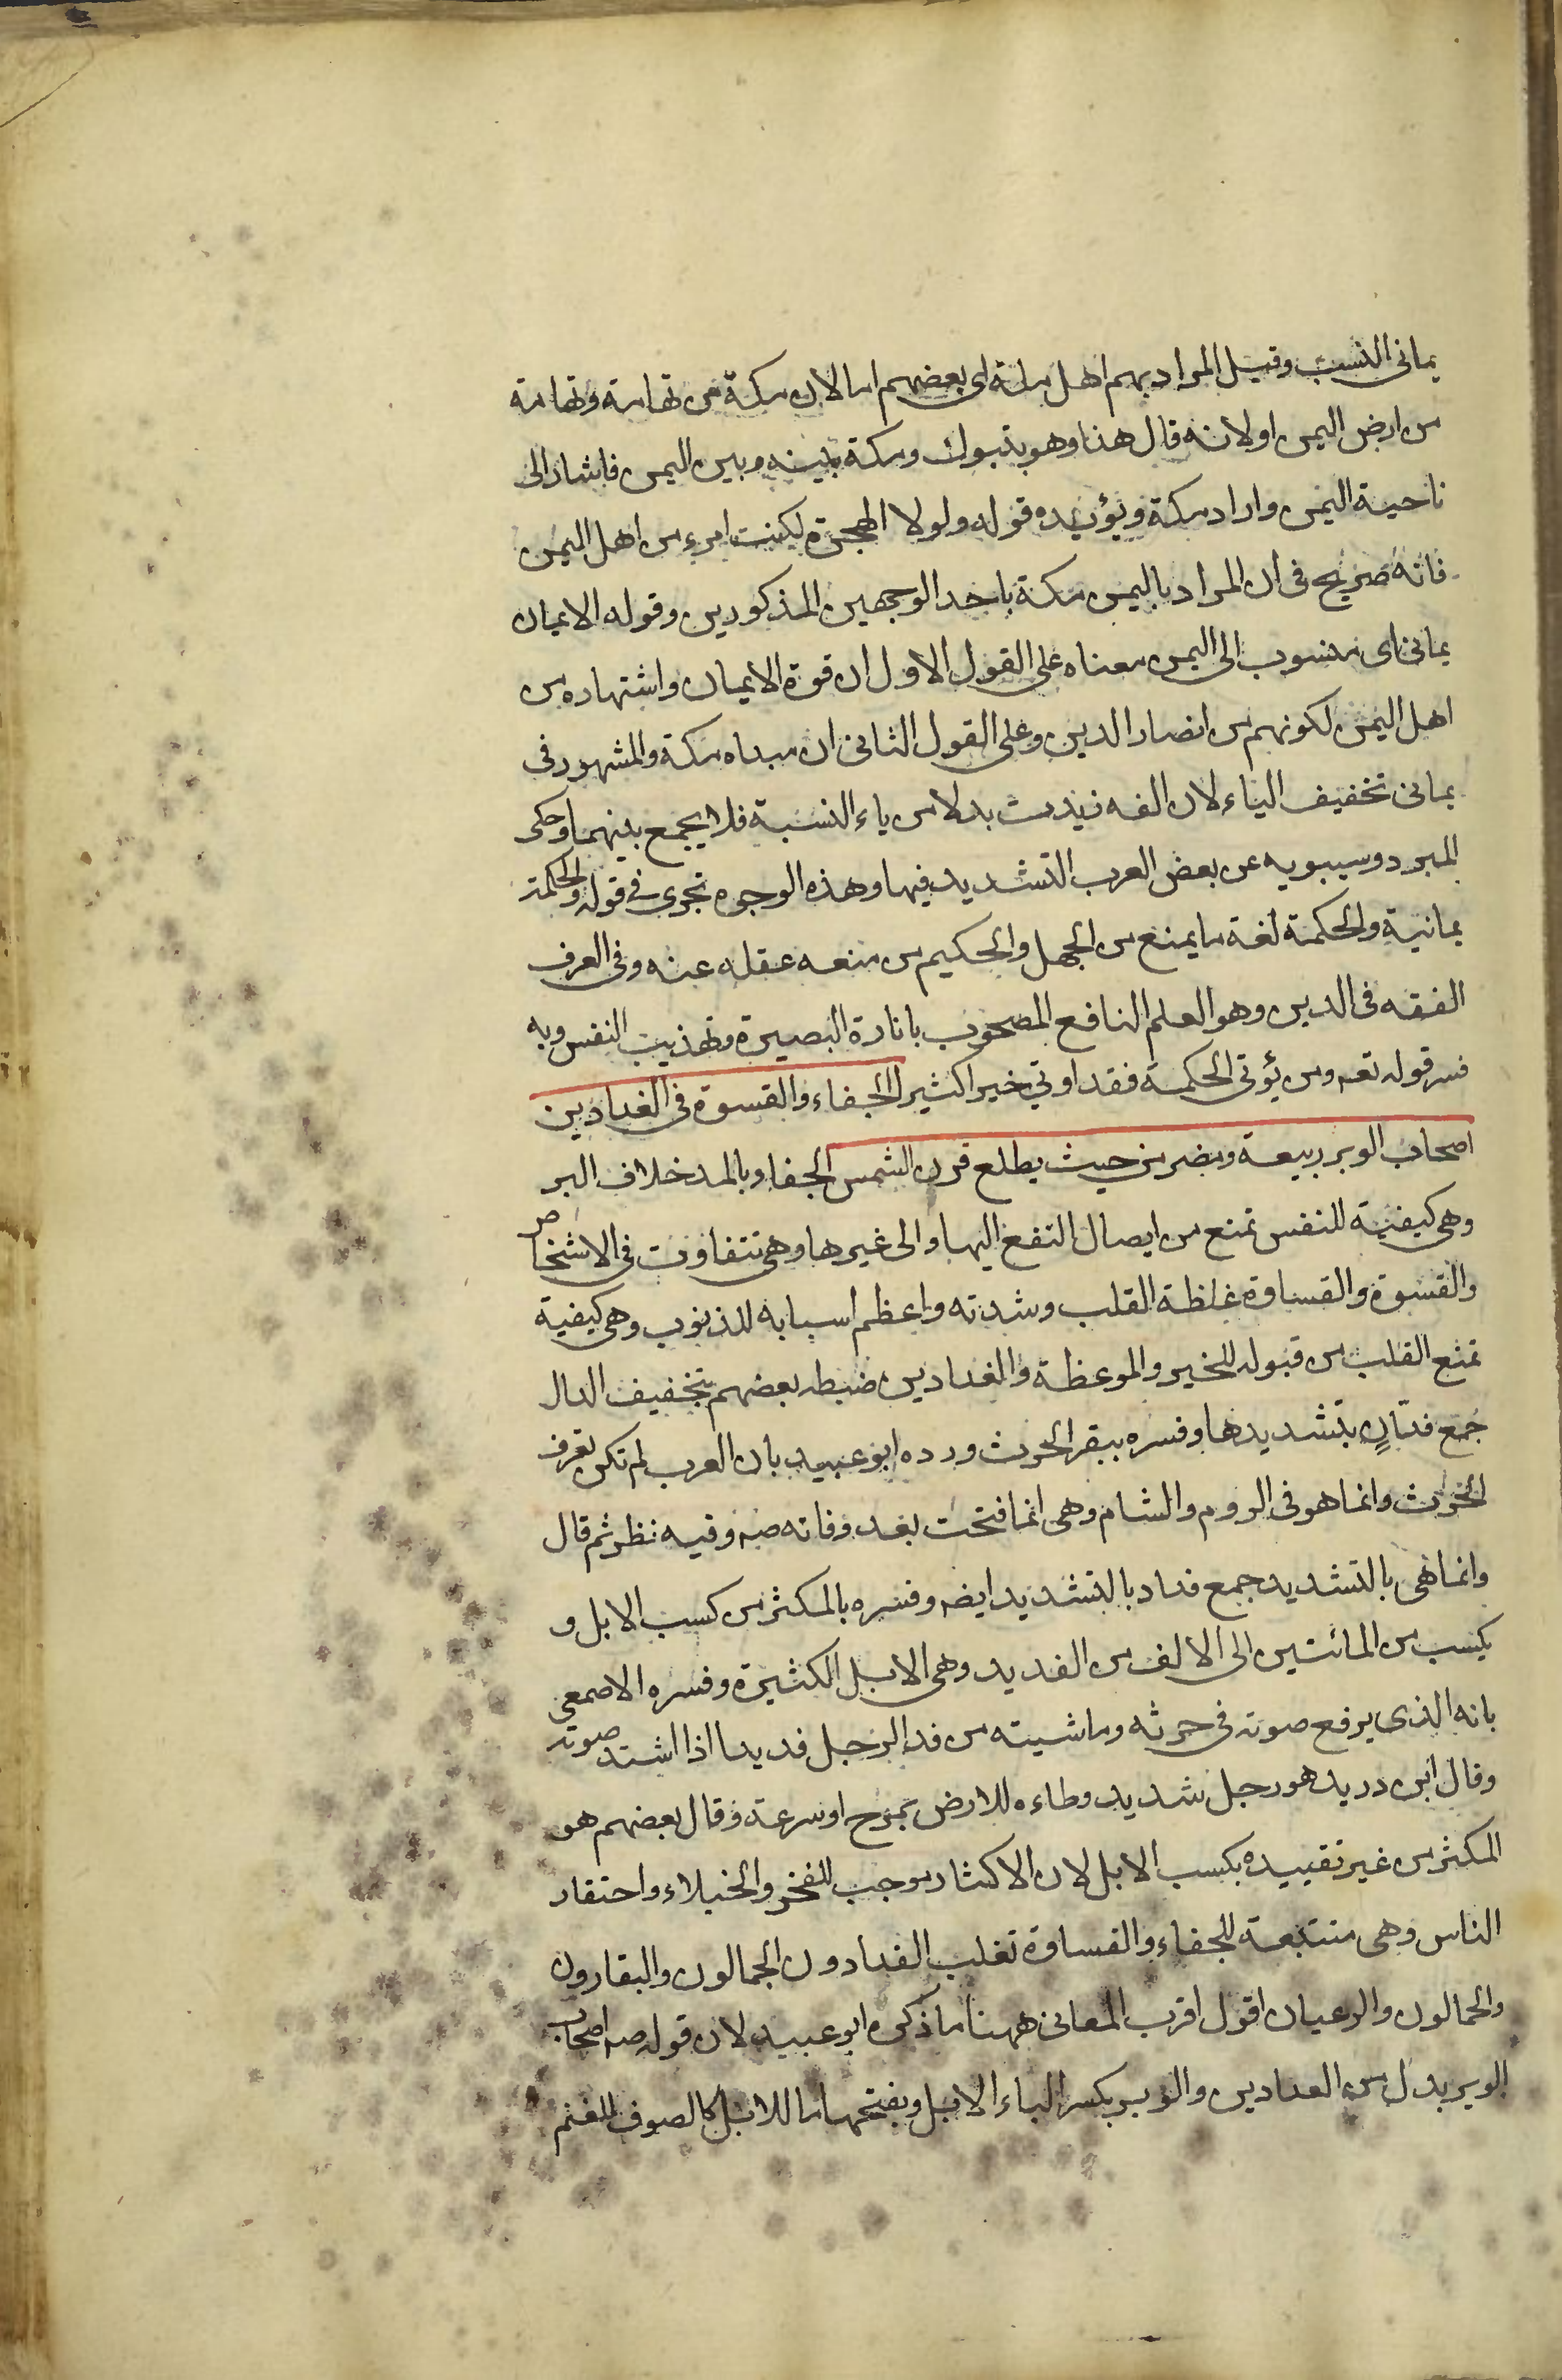 يمانى النسب وقيل المراد بهم اهل مكة اى بعضهم اما لان مكة من تهامة وتهامة
من ارض اليمن او لانه قال هذا وهو بتبوك ومكة بينه وبين اليمن فاشار الى
ناحية اليمن واراد مكة ويؤيده قوله ولولا الهجرة لكنت امرء من اهل اليمن
فانه صريح فى ان المراد باليمن مكة باحد الوجهين المذكورين وقوله الايمان
يمانى اى منسوب الى اليمن معناه على القول الاول ان قوة الايمان واشتهاره من
اهل اليمن لكونهم من انصار الدين وعلى القول الثانى ان مبداه مكة والمشهور فى
يمانى تخفيف الياء لان الفه زيدت بدلا من ياء النسبة فلا يجمع بينهما وحكى
المبرد وسيبويه عن بعض العرب التشديد فيها وهذه الوجوه تجرى فى قوله والحكمة
يمانية والحكمة لغة ما يمنع من الجهل والحكيم من منعه عقله عنه وفى العرف
الفقه فى الدين وهو العلم النافع المصحوب بانارة البصيرة وتهذيب النفس وبه
فسر قوله تعه ومن يؤتى الحكمة فقد اوتى خيرا كثيرا الجفاء والقسوة فى الفدادين
اصحاب الوبر ربيعة ومضر من حيث يطلع قرن الشمس الجفاء وبالمد خلاف البر
وهى كيفية للنفس تمنع من ايصال النفع اليها والى غيرها وهى تتفاوت فى الاشخاص
والقسوة والقساوة غلظة القلب وشدته واعظم اسبابه الذنوب وهى كيفية
تمنع القلب من قبوله للخير والموعظة والفدادين ضبطه بعضهم بتخفيف الدال
جمع فدّانٍ بتشديدها وفسره ببقر الحرث ورده ابو عبيد بان العرب لم تكن تعرف
الحرث وانما هو فى الروم والشام وهى انما فتحت بعد وفاته صه وفيه نظر ثم قال
وانما هى بالتشديد جمع فداد بالتشديد ايضه وفسره بالمكثر من كسب الابل و
يكسب من المائتين الى الالف من الفديد وهى الابل الكثيرة وفسره الاصمعى
بانه الذى يرفع صوته فى حرثه وماشيته من فد الرجل فديدا اذا اشتد صوته
وقال ابن دريد هو رجل شديد وطاءه للارض بمرح او سرعة وقال بعضهم هو
المكثر من غير تقييده بكسب الابل لان الاكثار موجب للفخر والخيلاء واحتقار
الناس وهى مستتبعة للجفاء والقساوة تغلب الفدادون الجمالون والبقارون
والحمالون والرعيان اقول اقرب المعانى ههنا ما ذكره ابو عبيد لان قوله صه اصحاب
الوبر بدل من الفدادين والوبر بكسر الباء الابل وبفتحها ما للابل كالصوف للغنم